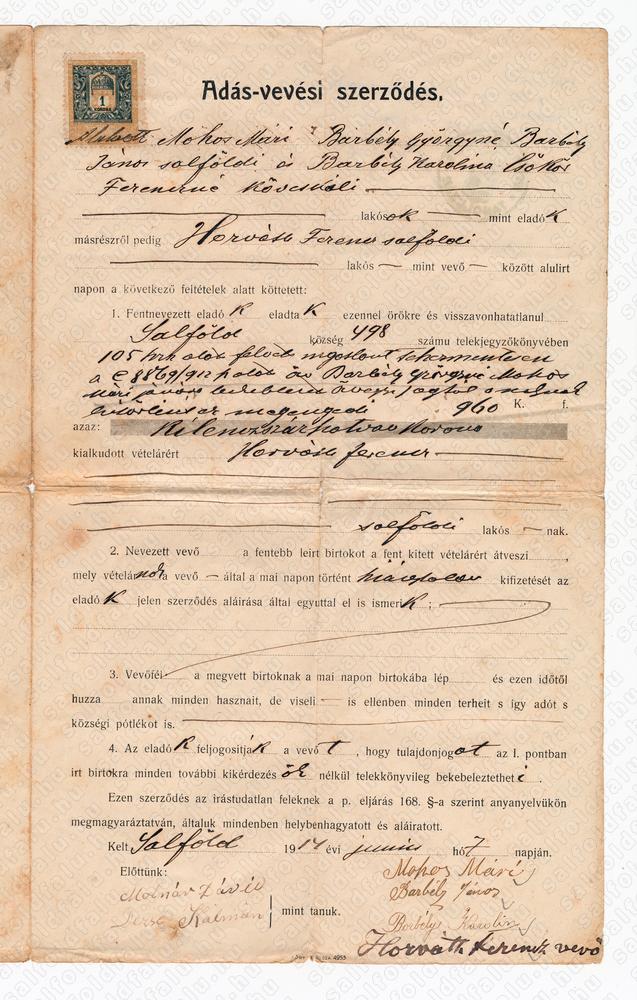 Adás-vevési szerződés.
1
KORONA
Mohos Mári Barbély Györgyné, Barbély
János salföldi és Barbély Karolina
Ferencné Kőveskáli
lakósok mint eladó K
másrészről pedig Horváth Ferencz salföldi
lakós mint vevő között alulirt
napon a következő feltételek alatt köttetett:
1. Fentnevezett eladó K eladta K ezennel örökre és visszavonhatatlanul
Salföld község 498 számu telekjegyzőkönyvében
105 hrsz alatt
a 8869/912 Barbély Györgyné Mohos
Mári javára özvegyi jogtól
megengedi 960 K. f.
azaz: Kilenczszázhatvan Korona
kialkudott vételárért Horváth Ferencz
salföldi lakós nak.
2. Nevezett vevő a fentebb leirt birtokot a fent kitett vételárért átveszi
mely vételár a vevő által a mai napon történt kifizetését az
eladó K jelen szerződés aláirása által egyuttal el is ismeri K ;
3. Vevőfél a megvett birtoknak a mai napon birtokába lép és ezen időtől
huzza annak minden hasznait, de viseli is ellenben minden terheit s igy adót s
községi pótlékot is.
4. Az eladó K feljogositják a vevő t , hogy tulajdonjogot az I. pontban
irt birtokra minden további kikérdezés ök nélkül telekkönyvileg bekebeleztethet i .
Ezen szerződés az irástudatlan feleknek a p. eljárás 168. §-a szerint anyanyelvükön
megmagyaráztatván, általuk mindenben helybenhagyatott és aláiratott.
Kelt Salföld 1914 évi junius hó 7 napján.
Előttünk: Mohos Mári
Molnár Dávid Barbély János
Kálmán mint tanuk. Barbély Karolin
Horváth Ferencz vevő